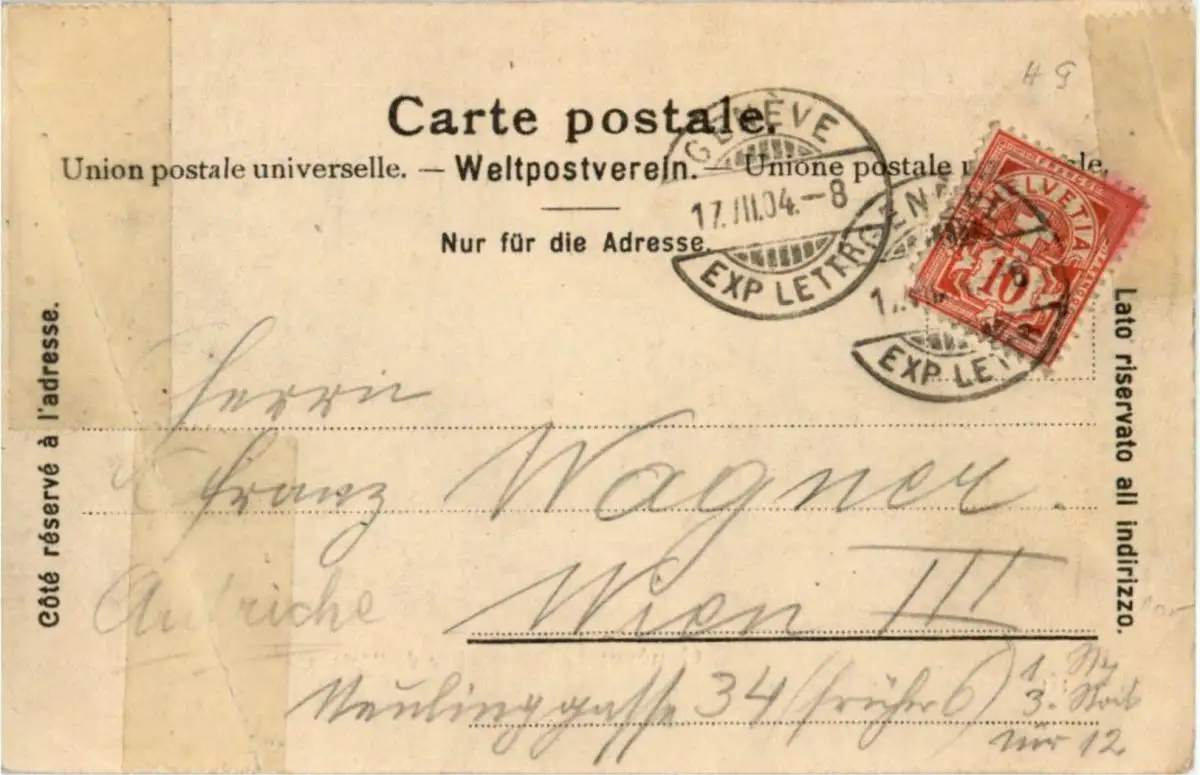 H G
Carte postale.
Union postale universelle. — Weltpostverein. — Unione postale
Nur für die Adresse.
GENÈVE
17.III.04.–8
EXP. LETTR.
GEN
17.
EXP. LETTR.
HELVETIA
10
Côté réservé à l'adresse.
Lato riservato all indirizzo.
Herrn
Franz Wagner.
Autriche
Wien III
Neulinggasse 34 (früher 6)
1. St
3. Stock
Tür 12